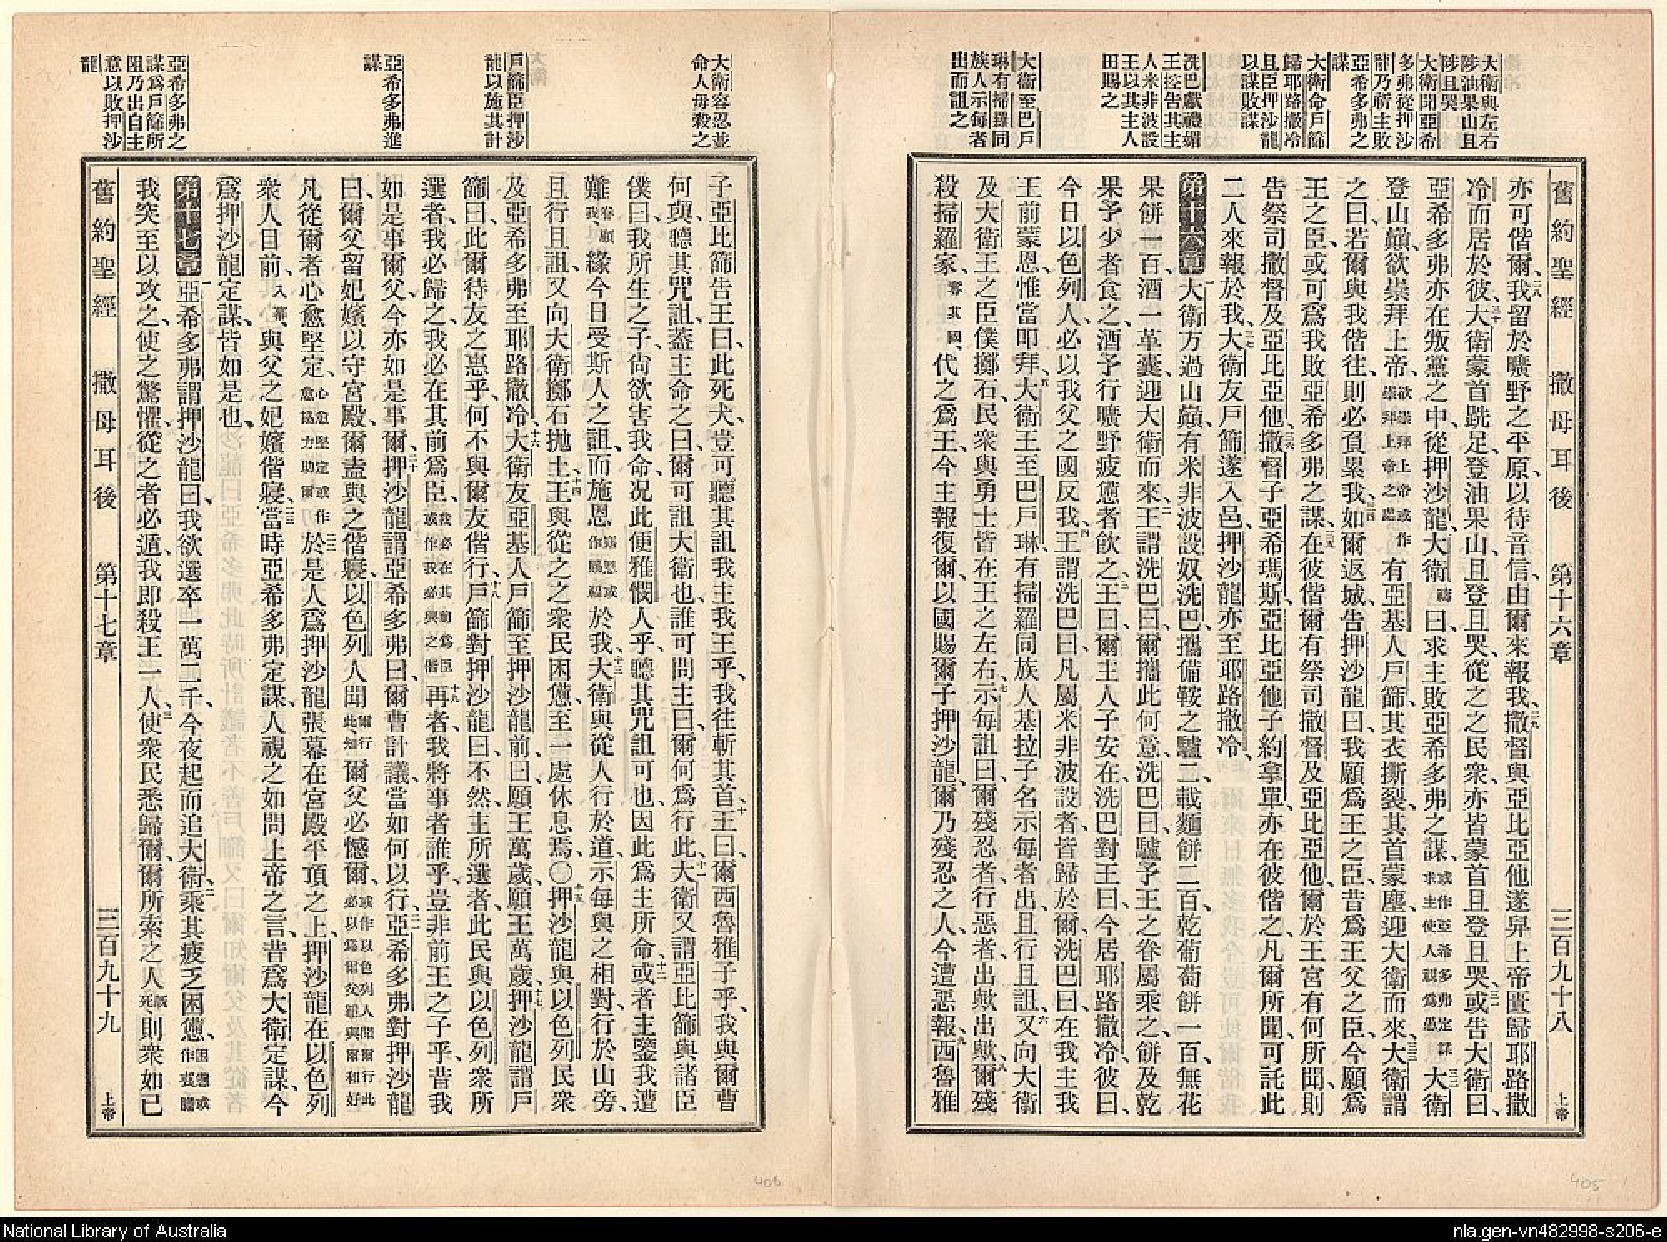 舊約聖經 撒母耳後 第十六章 三百九十八 上帝
大衛與左右
陟油果山且
陟且哭
大衛聞亞希
多弗從押沙
龍乃禱主敗
亞希多弗之
謀
大衛命戶篩
歸耶路撒冷
且臣押沙龍
以謀敗謀
洗巴獻禮媚
王控告其主
人米非波設
王以其主人
田賜之
大衛至巴戶
琳有掃羅同
族人示每者
出而詛之
亦可偕爾、二八我留於曠野之平原、以待音信、由爾來報我、二九撒督與亞比亞他遂舁上帝匱歸耶路撒
冷而居於彼、三十大衛蒙首跣足、登油果山、且登且哭、從之之民衆、亦皆蒙首、且登且哭、三一或告大衛曰、
亞希多弗亦在叛黨之中、從押沙龍、大衛禱曰、求主敗亞希多弗之謀、或作亞希多弗定謀求主使人視爲愚三二大衛
登山巔、欲崇拜上帝、欲崇拜上帝或作崇拜上帝之處有亞基人戶篩、其衣撕裂、其首蒙塵、迎大衛而來、三三大衛謂
之曰、若爾與我偕往、則必負累我、三四如爾返城、告押沙龍曰、我願爲王之臣、昔爲王父之臣、今願爲
王之臣、或可爲我敗亞希多弗之謀、三五在彼偕爾有祭司撒督及亞比亞他、爾於王宮有何所聞、則
告祭司撒督及亞比亞他、三六撒督子亞希瑪斯、亞比亞他子約拿單、亦在彼偕之、凡爾所聞、可託此
二人來報於我、三七大衛友戶篩遂入邑、押沙龍亦至耶路撒冷、
第十六章 一大衛方過山巔、有米非波設奴洗巴、攜備鞍之驢二、載麵餅二百、乾葡萄餅一百、無花
果餅一百、酒一革囊、迎大衛而來、二王謂洗巴曰、爾攜此何意、洗巴曰、驢予王之眷屬乘之、餅及乾
果予少者食之、酒予行曠野疲憊者飲之、三王曰、爾主人子安在、洗巴對王曰、今居耶路撒冷、彼曰、
今日以色列人、必以我父之國反我、四王謂洗巴曰、凡屬米非波設者、皆歸於爾、洗巴曰、在我主我
王前蒙恩、惟當叩拜、五大衛王至巴戶琳、有掃羅同族人基拉子名示每者出、且行且詛、六又向大衛
及大衛王之臣僕擲石、民衆與勇士皆在王之左右、七示每詛曰、爾殘忍者、行惡者、出歟出歟、八爾殘
殺掃羅家、奪其國、代之爲王、今主報復爾、以國賜爾子押沙龍、爾乃殘忍之人、今遭惡報、九西魯雅
大衛容忍並
命人毋殺之
戶篩臣押沙
龍以施其計
亞希多弗進
謀
亞希多弗之
謀爲戶篩所
阻乃出自主
意以敗押沙
龍
子亞比篩告王曰、此死犬、豈可聽其詛我主我王乎、我往斬其首、十王曰、爾西魯雅子乎、我與爾曹
何與、聽其咒詛、蓋主命之曰、爾可詛大衛也、誰可問主曰、爾何爲行此、十一大衛又謂亞比篩與諸臣
僕曰、我所生之子、尙欲害我命、况此便雅憫人乎、聽其咒詛可也、因此爲主所命、十二或者主鑒我遭
難、眷顧我、緣今日受斯人之詛、而施恩於我、十三大衛與從人行於道、示每與之相對、行於山旁、
且行且詛、又向大衛擲石抛土、十四王與從之之衆民困憊、至一處休息焉、〇十五押沙龍與以色列民衆
及亞希多弗至耶路撒冷、十六大衛友亞基人戶篩至押沙龍前、曰、願王萬歲、願王萬歲、十七押沙龍謂戶
篩曰、此爾待友之惠乎、何不與爾友偕行、十八戶篩對押沙龍曰、不然、主所選者、此民與以色列衆所
選者、我必歸之、我必在其前爲臣、我必在其前爲臣或作我必與之偕十九再者、我將事者誰乎、豈非前王之子乎、昔我
如是事爾父、今亦如是事爾、二十押沙龍謂亞希多弗曰、爾曹計議、當如何以行、二一亞希多弗對押沙龍
曰、爾父留妃嬪以守宮殿、爾盡與之偕寢、以色列人聞爾行此、知爾父必憾爾、或作以色列人聞爾行此必以爲爾父難與爾和好
凡從爾者心愈堅定、心愈堅定或作愈協力助爾二二於是人爲押沙龍張幕在宮殿平頂之上、押沙龍在以色列
衆人目前、入幕、與父之妃嬪偕寢、二三當時亞希多弗定謀、人視之如問上帝之言、昔爲大衛定謀、今
爲押沙龍定謀、皆如是也、
第十七章 一亞希多弗謂押沙龍曰、我欲選卒一萬二千、今夜起而追大衛、二乘其疲乏困憊、困憊或作喪膽
我突至以攻之、使之驚懼、從之者必遁、我即殺王一人、三使衆民悉歸爾、爾所索之人既死、則衆如已
舊約聖經 撒母耳後 第十七章 三百九十九 上帝
405
406
National Library of Australia
nla.gen-vn482998-s206-e